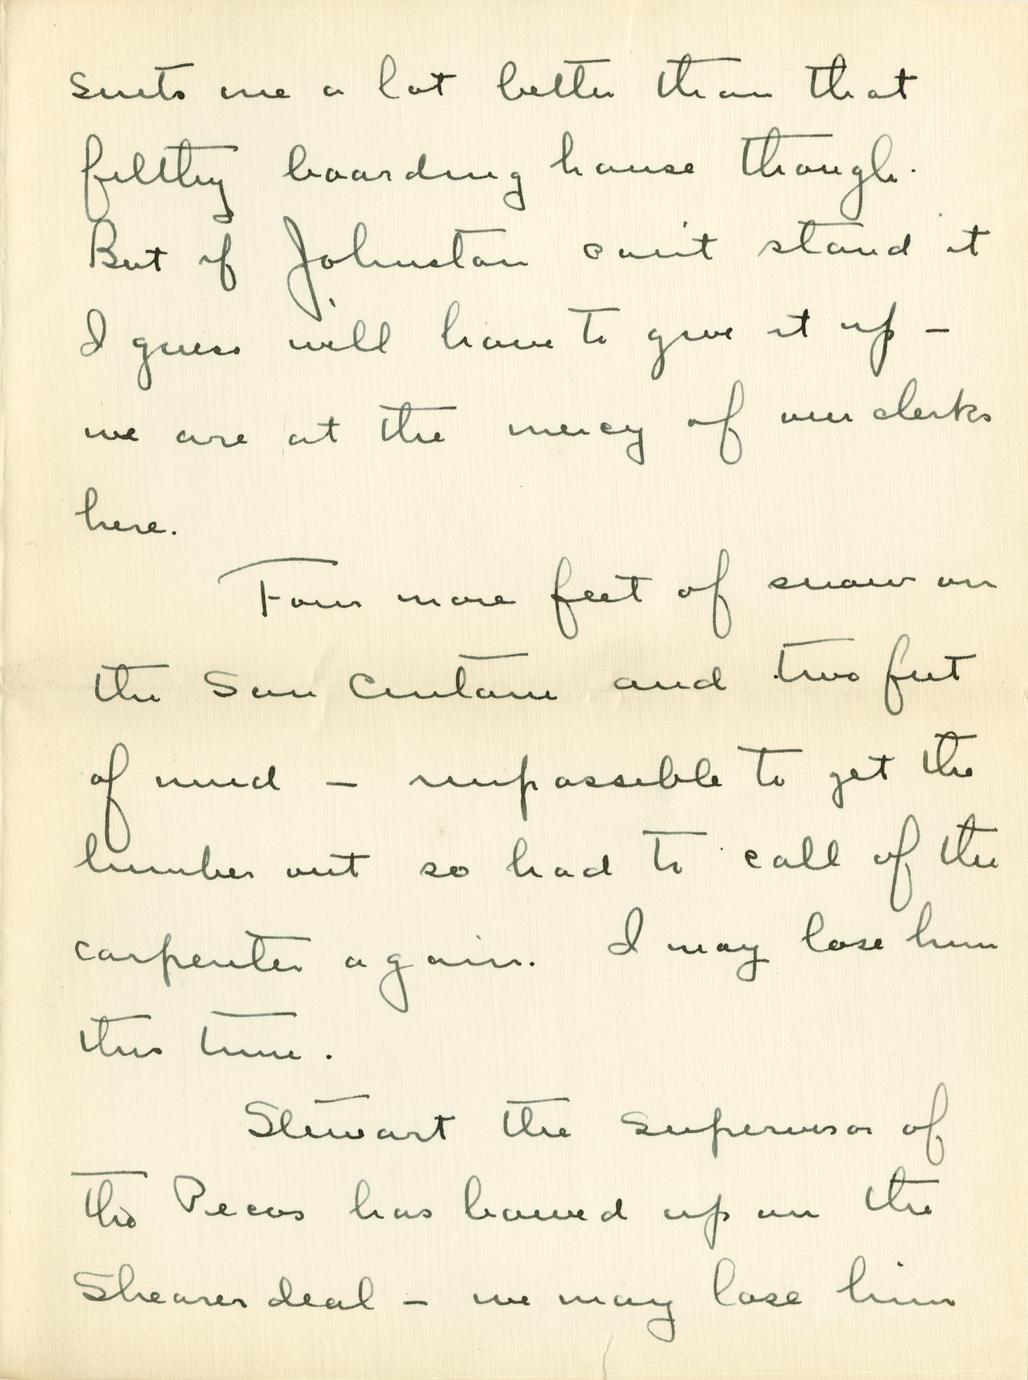 suits me a lot better than that
filthy boarding house though.
But if Johnston can't stand it
I guess we'll have to give it up –
we are at the mercy of our clerks
here.
Four more feet of snow on
the San Antone and two feet
of mud – impossible to get the
lumber out so had to call of the
carpenter again. I may lose him
this time.
Stewart the supervisor of
the Pecos has bowed up on the
Shearer deal – we may lose him